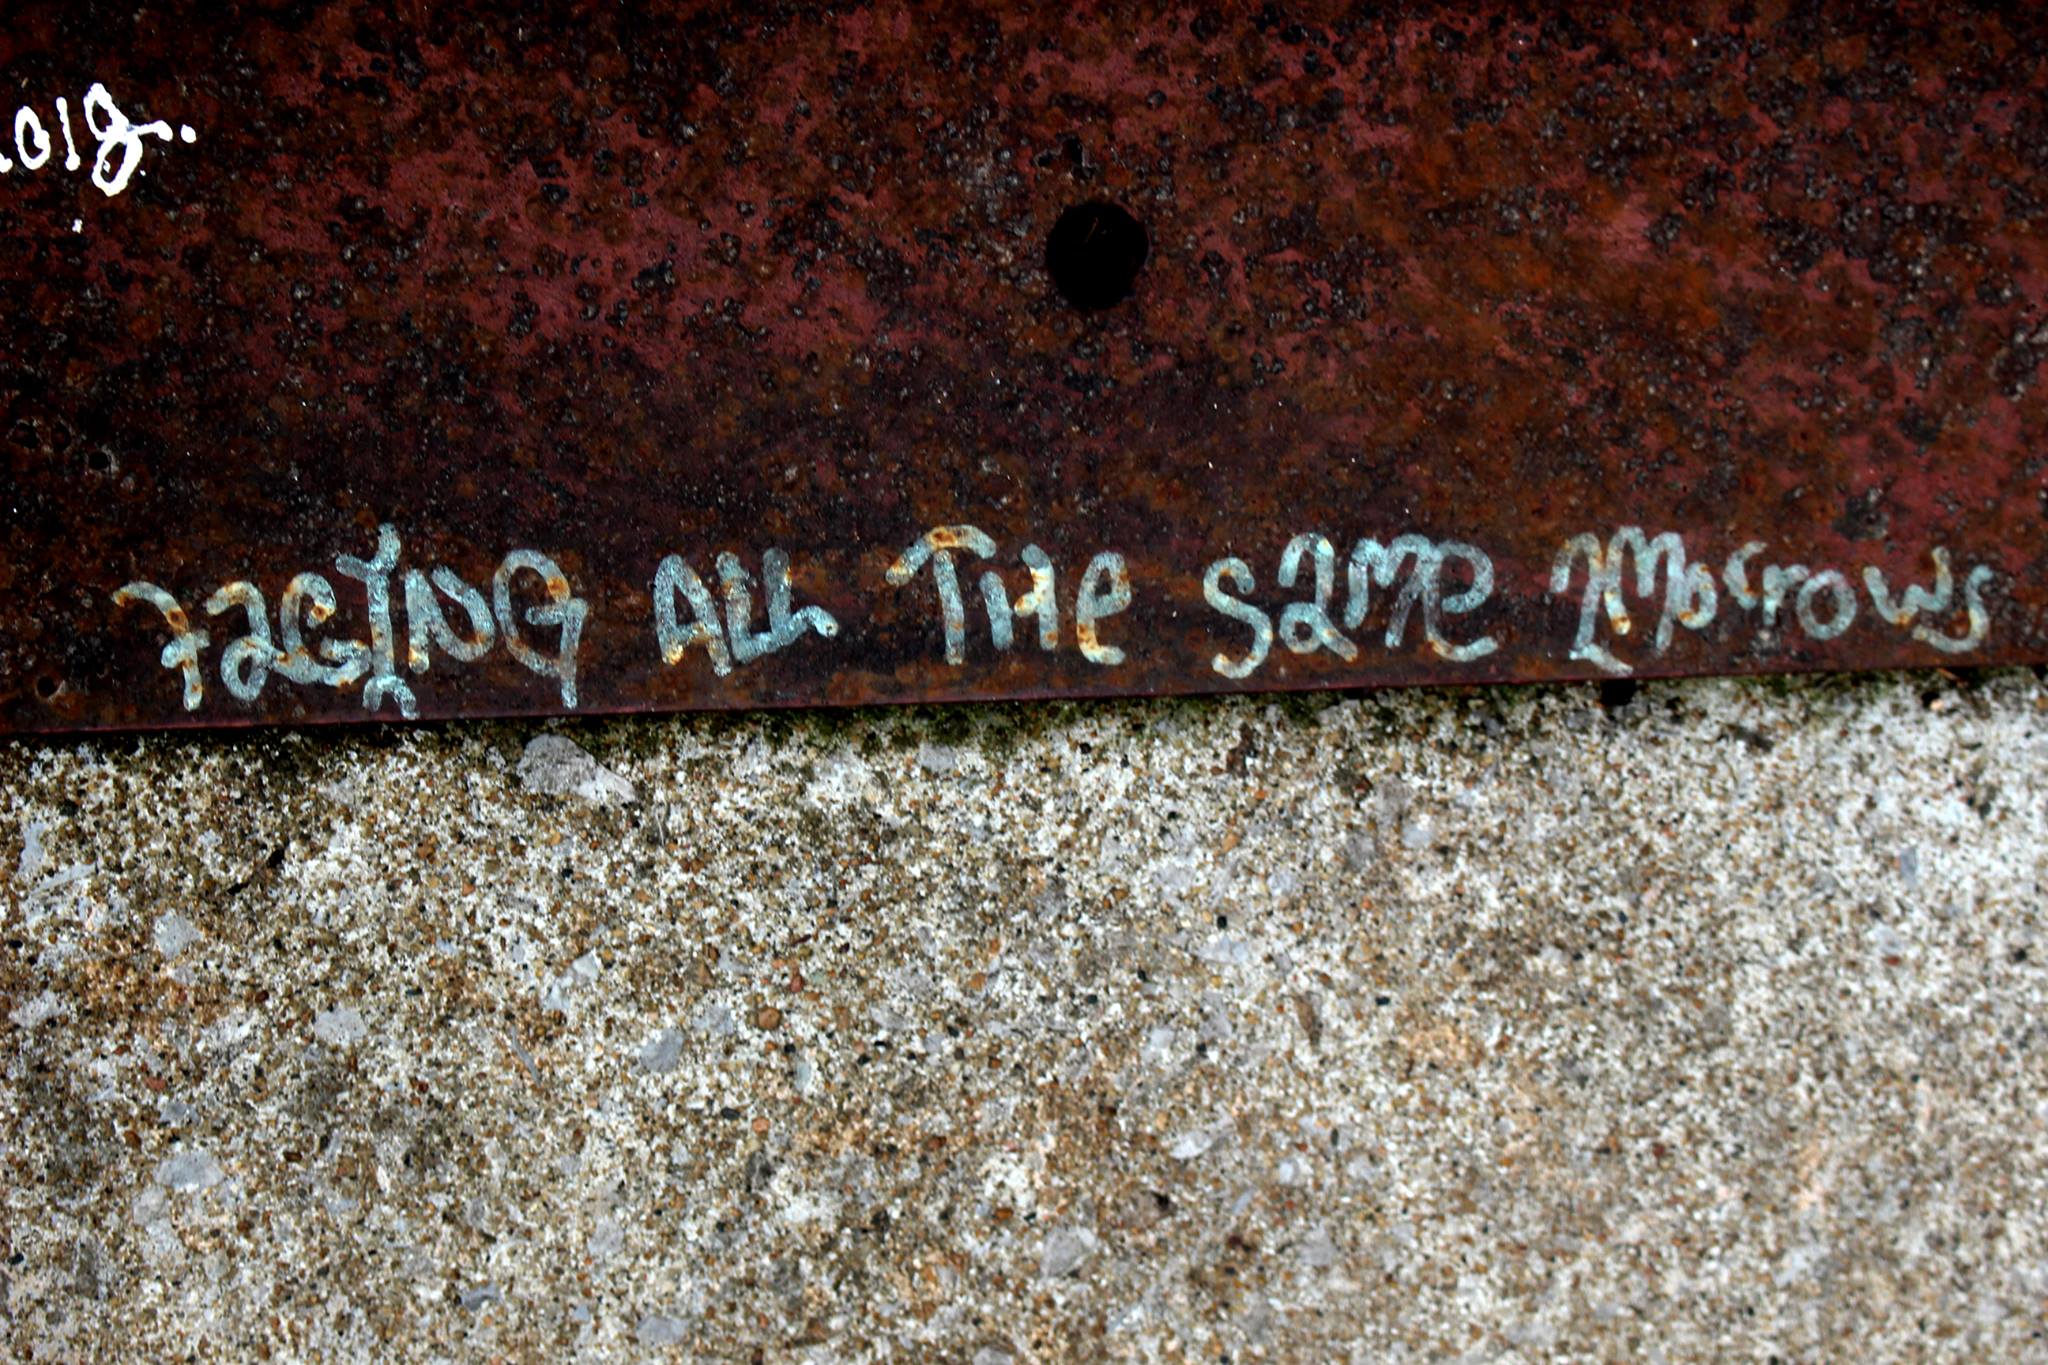 FacING ALL THe Same Morrows